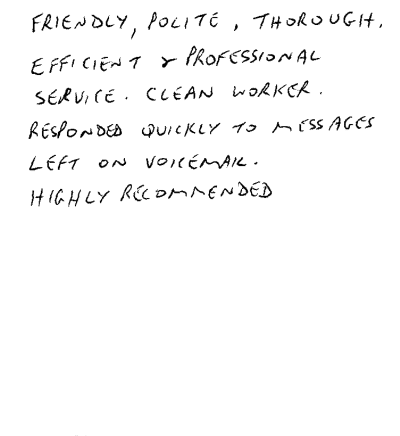 FRIENDLY, POLITE, THOROUGH.
EFFICIENT & PROFESSIONAL
SERVICE. CLEAN WORKER.
RESPONDED QUICKLY TO MESSAGES
LEFT ON VOICEMAIL.
HIGHLY RECOMMENDED